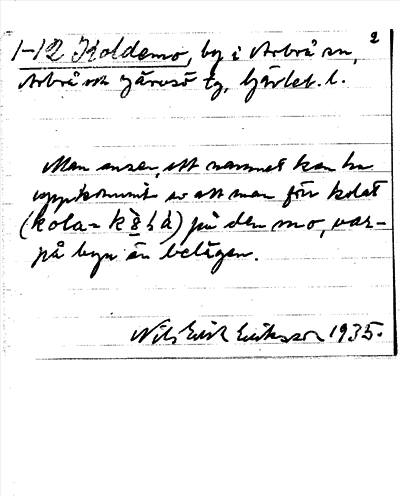 2
1-12 Koldemo, by i Arbrå sn,
Arbrå och Järvsö tg, Gävleb. l.
Man anser, att namnet kan ha
uppkommit av att man förr kolat
(kola= ) på den mo, var-
på byn är belägen.
Nils Erik Eriksson 1935.